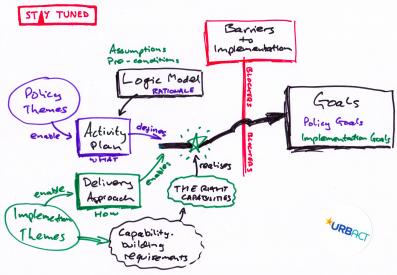 STAY TUNED
Barriers
to
Implementation
Assumptions
Pre-conditions
Logic Model
RATIONALE
BLOCKERS
BREAKERS
Goals
Policy Goals
Implementation Goals
Policy
Themes
enable
Activity
Plan
WHAT
defines
enables
realises
THE RIGHT
CAPABILITIES
enable
Delivery
Approach
HOW
Implementation
Themes
Capability-
building
requirements
URBACT